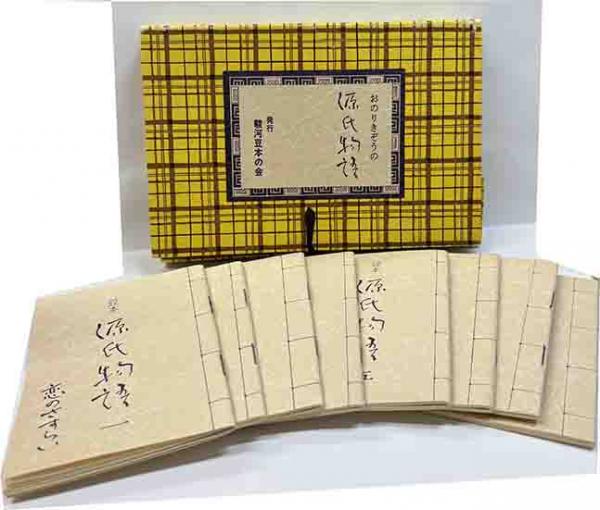 おのりきぞうの
源氏物語
発行
駿河豆本の会
源氏物語 一
恋のさすらい
源氏物語 五